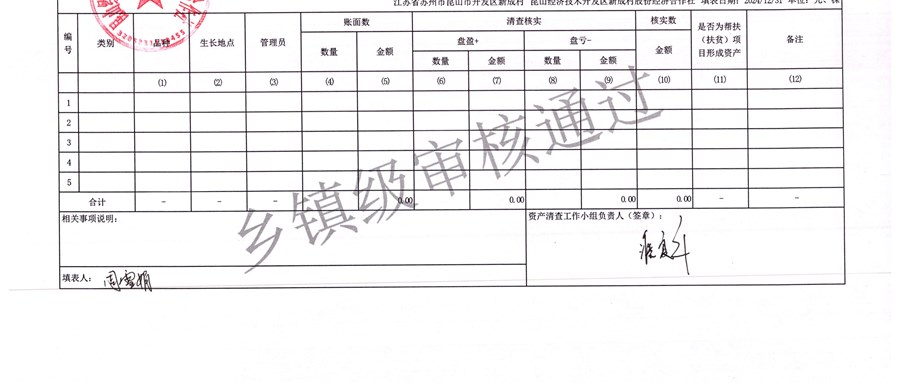 江苏省苏州市昆山市开发区新成村 昆山经济技术开发区新成村股份经济合作社 填表日期：2024/12/31 单位：元、株
编号 类别 品种 生长地点 管理员 账面数 清查核实 核实数 是否为帮扶（扶贫）项目形成资产 备注
盘盈+ 盘亏-
数量 金额 数量 金额 数量 金额 金额
(1) (2) (3) (4) (5) (6) (7) (8) (9) (10) (11) (12)
1
2
3
4
5
合计 - - - 0.00 - 0.00 0.00 0.00 - -
乡镇级审核通过
相关事项说明：
资产清查工作小组负责人（签章）：
填表人：